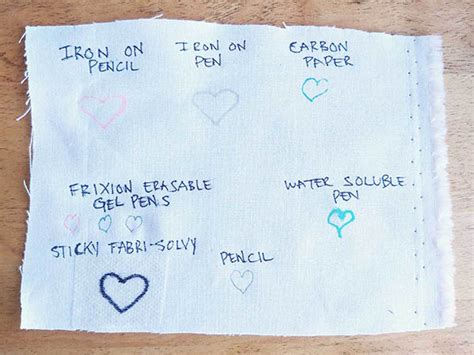 IRON ON
PENCIL
IRON ON
PEN
CARBON
PAPER
FRIXION ERASABLE
GEL PENS
WATER SOLUBLE
PEN
STICKY FABRI-SOLVY
PENCIL